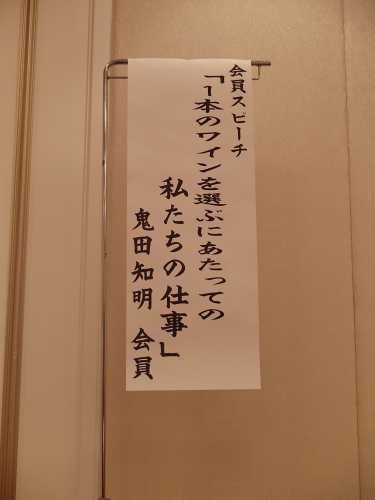 会員スピーチ
「1本のワインを選ぶにあたっての
私たちの仕事」
鬼田知明 会員